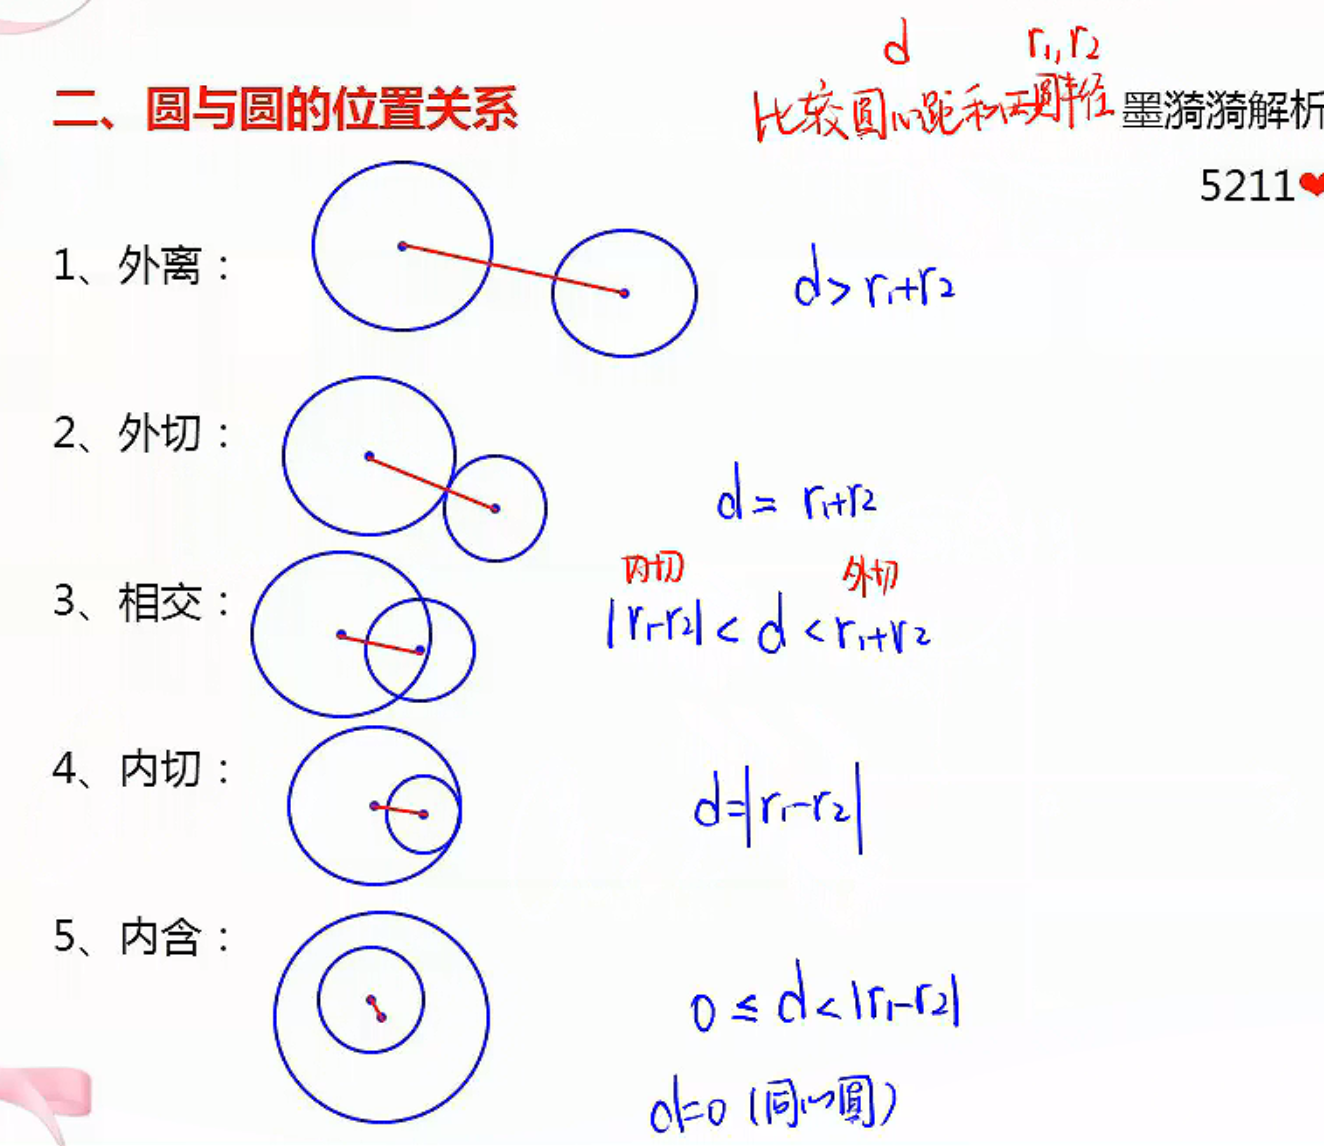 d r₁,r₂
二、圆与圆的位置关系
比较圆心距和两圆半径
墨漪漪解析
5211❤
1、外离：
d>r₁+r₂
2、外切：
d=r₁+r₂
内切 外切
3、相交：
|r₁-r₂|<d<r₁+r₂
4、内切：
d=|r₁-r₂|
5、内含：
0≤d<|r₁-r₂|
d=0（同心圆）